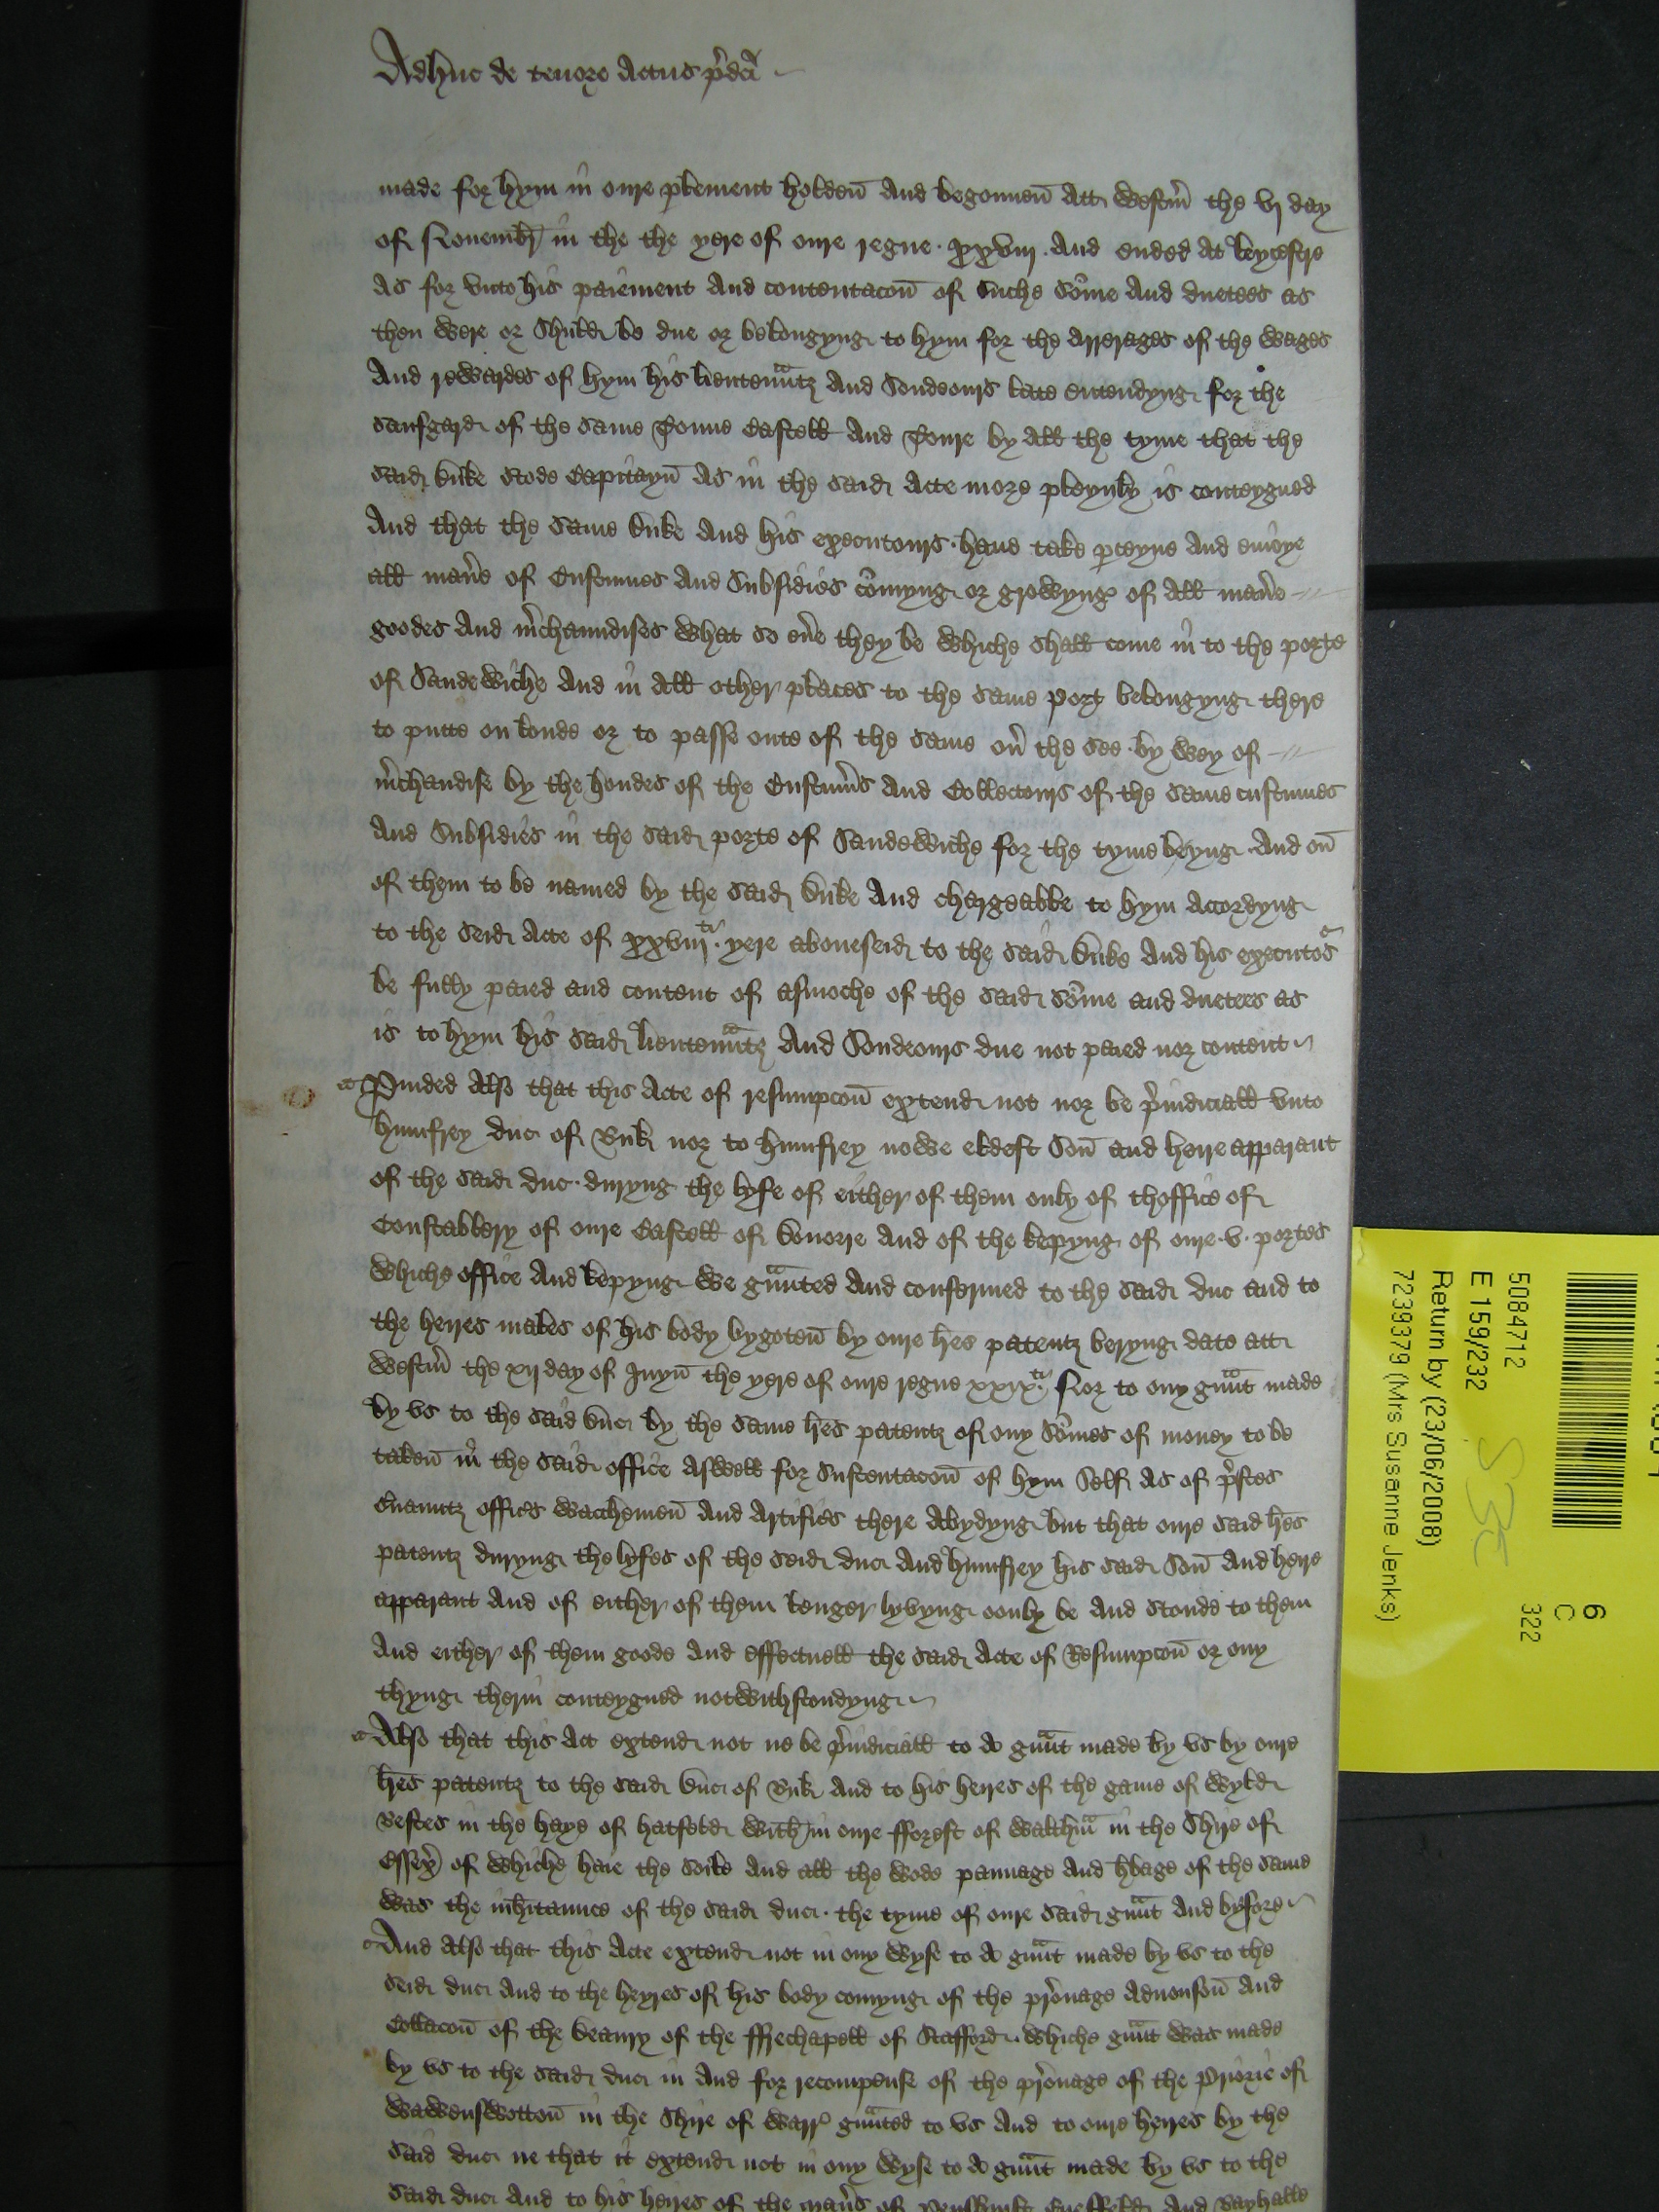 Adhuc de tenore Actus p'dc'i
made for hym in oure p'lement holden And begonnen Att Westm' the vj day
of Novemb' in the the yere of oure regne . xxviij . And ended At Leycestre
As for vnto his paiement And contentacon of Suche So'me And duetees as
then were or Shuld be due or belongyng to hym for the Arrerages of the Wages
And rewardes of hym his lieutenantz And Soudeours late entendyng for the
saufgard of the same Toune Castell And Toure by All the tyme that the
said Duke stode Capitayn As in the said Acte more pleynly is conteygned
And that the same Duke And his executours . have take p'ceyve And enioye
all man'e of Custumes And Subsidies co'myng or growyng of All man'e
goodes And m'chaundises What so eu'e they be Whiche shall come in to the porte
of Sandewiche And in All other places to the same port belongyng there
to putte on londe or to passe oute of the same ou' the see . by Wey of
m'chandise by the hondes of the Custum's And Collectours of the same custumes
And Subsidies in the said porte of Sandewiche for the tyme beyng . And on
of them to be named by the said Duke And chargeable to hym Accordyng
to the seid Acte of xxviij ti . yere aboueseid to the said Duke And his executo's
be fully paied and content of asmoche of the said So'me and duetees as
is to hym his said lieutenantz And Soudeours due not paied nor content
P'uided Also that this Acte of resumpcon extend not nor be p'iudiciall vnto
humfrey duc of Buk nor to humfrey nowe eldest Son and heire apparant
of the said duc . duryng the lyfe of either of them only of thoffice of
Constablery of oure Castell of Douorre And of the kepyng of oure . v . portes
Whiche office And kepyng We gunted And confermed to the said duc and to
the heires males of his body bygoten by oure l'res patentz beryng date att
Westm' the xij day of Juyn the yere of oure regne xxix ti . Nor to ony gunt made
by vs to the said Duc by the same l'res patentz of ony So'mes of money to be
taken in the said office Aswell for Sustentacon of hym Self As of p'stes
s'uauntz offices Wacchemen And Artifies there Abydyng but that oure said l'res
patentz duryng the lyfes of the seid duc And humfrey his said Son And heire
apparant And of either of them lenger lyvyng oonly be And Stonde to them
And either of them goode And effectuell the said Acte of Resumpcon or ony
thyng therin conteygned notwithstondyng
Also that this Act extend not ne be p'iudiciall to A gunt made by vs by oure
l'res patentz to the said Duc of Buk And to his heires of the game of Wyld
Bestes in the haye of hatfeld With in oure fforest of Waltham in the Shire of
Essex of Whiche haie the soile And all the Wode pannage And h'bage of the same
Was the inh'itaunce of the said duc . the tyme of oure said gunt And byfore
And Also that this Acte extend not in ony Wyse to A gunt made by vs to the
seid duc And to the heyres of his body comyng of the p'ronage Aduouson And
Collacon of the Deanry of the ffrechapell of Stafford . Whiche gunt Was made
by vs to the said duc in And for recompense of the p'ronage of the Priorie of
WaWensWotton in the Shire of Warr' gunted to vs And to oure heires by the
Said duc ne that it extend not in ony Wyse to A gunt made by vs to the
Said duc And to his heires of the man's of
5084712
E 159/232
Return by (23/06/2008)
7239379 (Mrs Susanne Jenks)
6
C
322